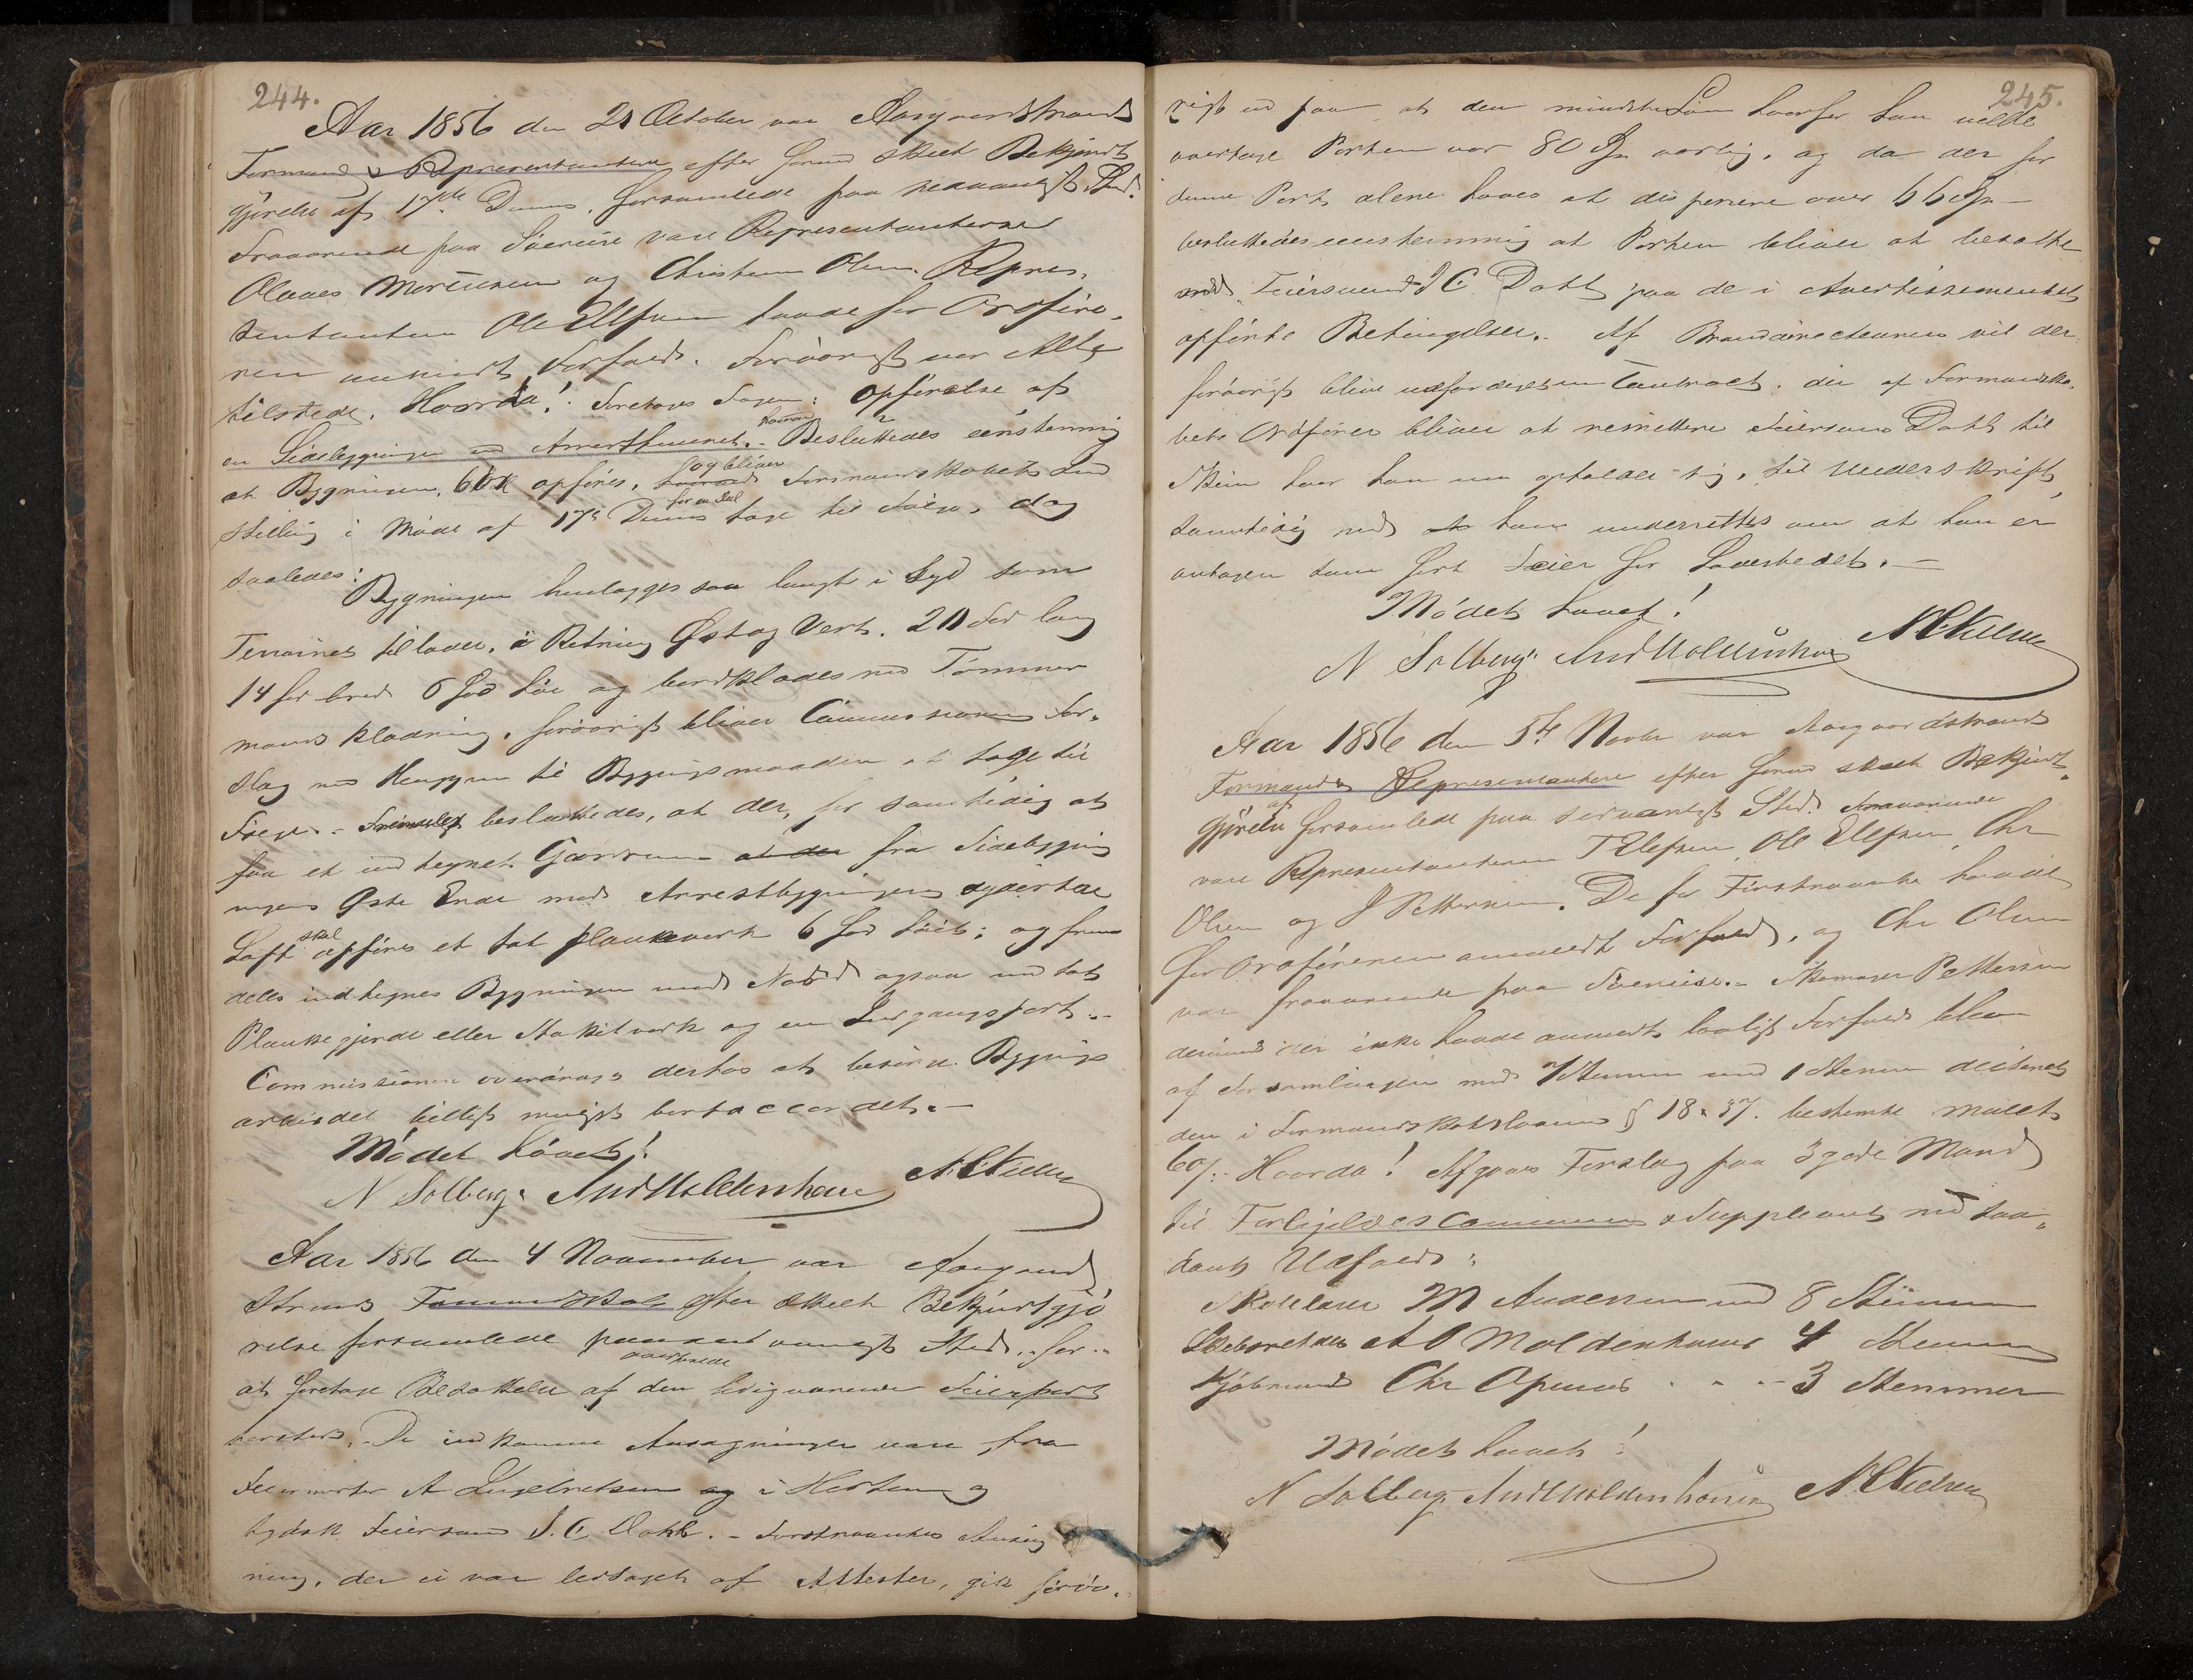 244.
Aar 1856 den 21 October var Aasgaardstrands
Formænd & Repræsentantere efter forud skeet Bekjendt
gjørelse af 17de Dennes, forsamlede paa sædvanligt Sted.
Fraværende paa Søereise vare Repræsentanterne
Olaves Mortensen og Christian Olsen. Repræ-
sentanten Ole Ellefsen havde for Ordføre-
ren anmeldt Forfald. Forøvrigt var Alle
tilstede. Hvorda! Foretoges Sagen: Opførelse af
en Sidebygningen ved Arresthuuset. - Besluttedes eenstemmig
at Bygningen, opføres, og bliver Formandskabets Ind
stilling i Møde af 17de Dennes for en Deel tage til Følge, dog
saaledes:
Bygningen henlægges saa langt i Syd som
Terrainet tillader, i Retning Øst og Vest. 20 Fod lang
14 Fod bred 6 Fod høi og bordklædes med Tømmer
mands klædning, forøvrigt bliver Commissionens For-
slag med Hensyn til Bygningsmaaden at tage til
Følge. - besluttedes, at der, for samtidig at
faa et indhegnet Gaardsrum at der fra Sidebygnin
gens Øste Ende mod Arrestbygningens sydøstre
skal
opføres et tæt plankeværk 6 Fod høit; og frem
deles indhegnes Bygningen mod Nord ogsaa med tæt
Plankegjerde eller Stakitværk og en Indgangsport. -
Commissionen overdrages derhos at besørge Bygnings
arbeidet billigst muligt bortaccorderet. -
Mødet hævet!
N Solberg. And Moldenhauer N C Nielsen
Aar 1856 den 4 November var Aasgaard
strands Formandskab efter skeet Bekjendtgjø
relse forsamlede paa sædvanligt Sted, for
at foretage Besættelse af den ledigværende Feierpost
hersteds. De indkomne Ansøgninger vare fra
Feiermester A Engebretsen og i Horten og
tydsk Feiersvend J. C. Dahl. - Førstnævntes Ansøg
ning, der ei var ledsaget af Attester, gik forøv-
245.
rigt ud paa at den mindste Løn hvorfor han vilde
overtage Posten var 80 Spd aarlig, og da der for
denne Post alene haves at disponere over 66 Spd -
besluttedes eenstemmig at Posten bliver at besætte
med Feiersvend J C Dahl paa de i Avertissementet
opførte Betingelser. Af Branddirecteuren vil der
forøvrigt blive udfærdiget en Contract, der af Formandska-
bets Ordfører bliver at remittere Feiersvend Dahl til
Skien hvor han nu opholder sig, til Underskrift,
samtidig med at han underrettes om at han er
antagen som fast Feier for Ladestedet. -
Mødet hævet!
N Solberg. And Moldenhauer N C Nielsen
Aar 1856 den 5te Novbr var Aasgaardstrands
Formænd & Repræsentantere efter forud skeet Bekjendt-
gjørelse forsamlede paa sædvanligt Sted. Fraværende
vare Repræsentanterne T Elefsen, Ole Ellefsen, Chr
Olsen og J Pettersen. De to Førstnævnte havde
for Ordføreren anmeldt Forfald, og Chr Olsen
var fraværende paa Søereise. - Skomager Pettersen
derimod der ikke havde anmeldt lovligt Forfald blev
af Forsamlingen med 7 Stemmer mod 1 Stemme dicteret
den i Formandskabsloven § 18 & 37. bestemte Mulct
60 /. - Hvorda! Afgaves Forslag paa 3 gode Mænd
til Forligelsescommissær & Suppleant med saa-
dant Udfald:
Skolelærer M Andersen med 8 Stemmer
A O Moldenhauer 4 Stemmer
Kjøbmand Chr Apenes - - - 3 Stemmer
Mødet hævet!
N Solberg. And Moldenhauer N C Nielsen